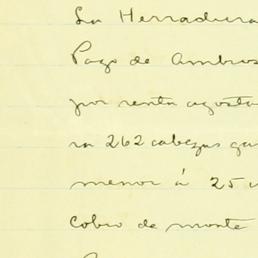 La Herradura
Pago de Ambros
por renta agosta
ra 262 cabezas ga
menor á 25 c
cobro de monte